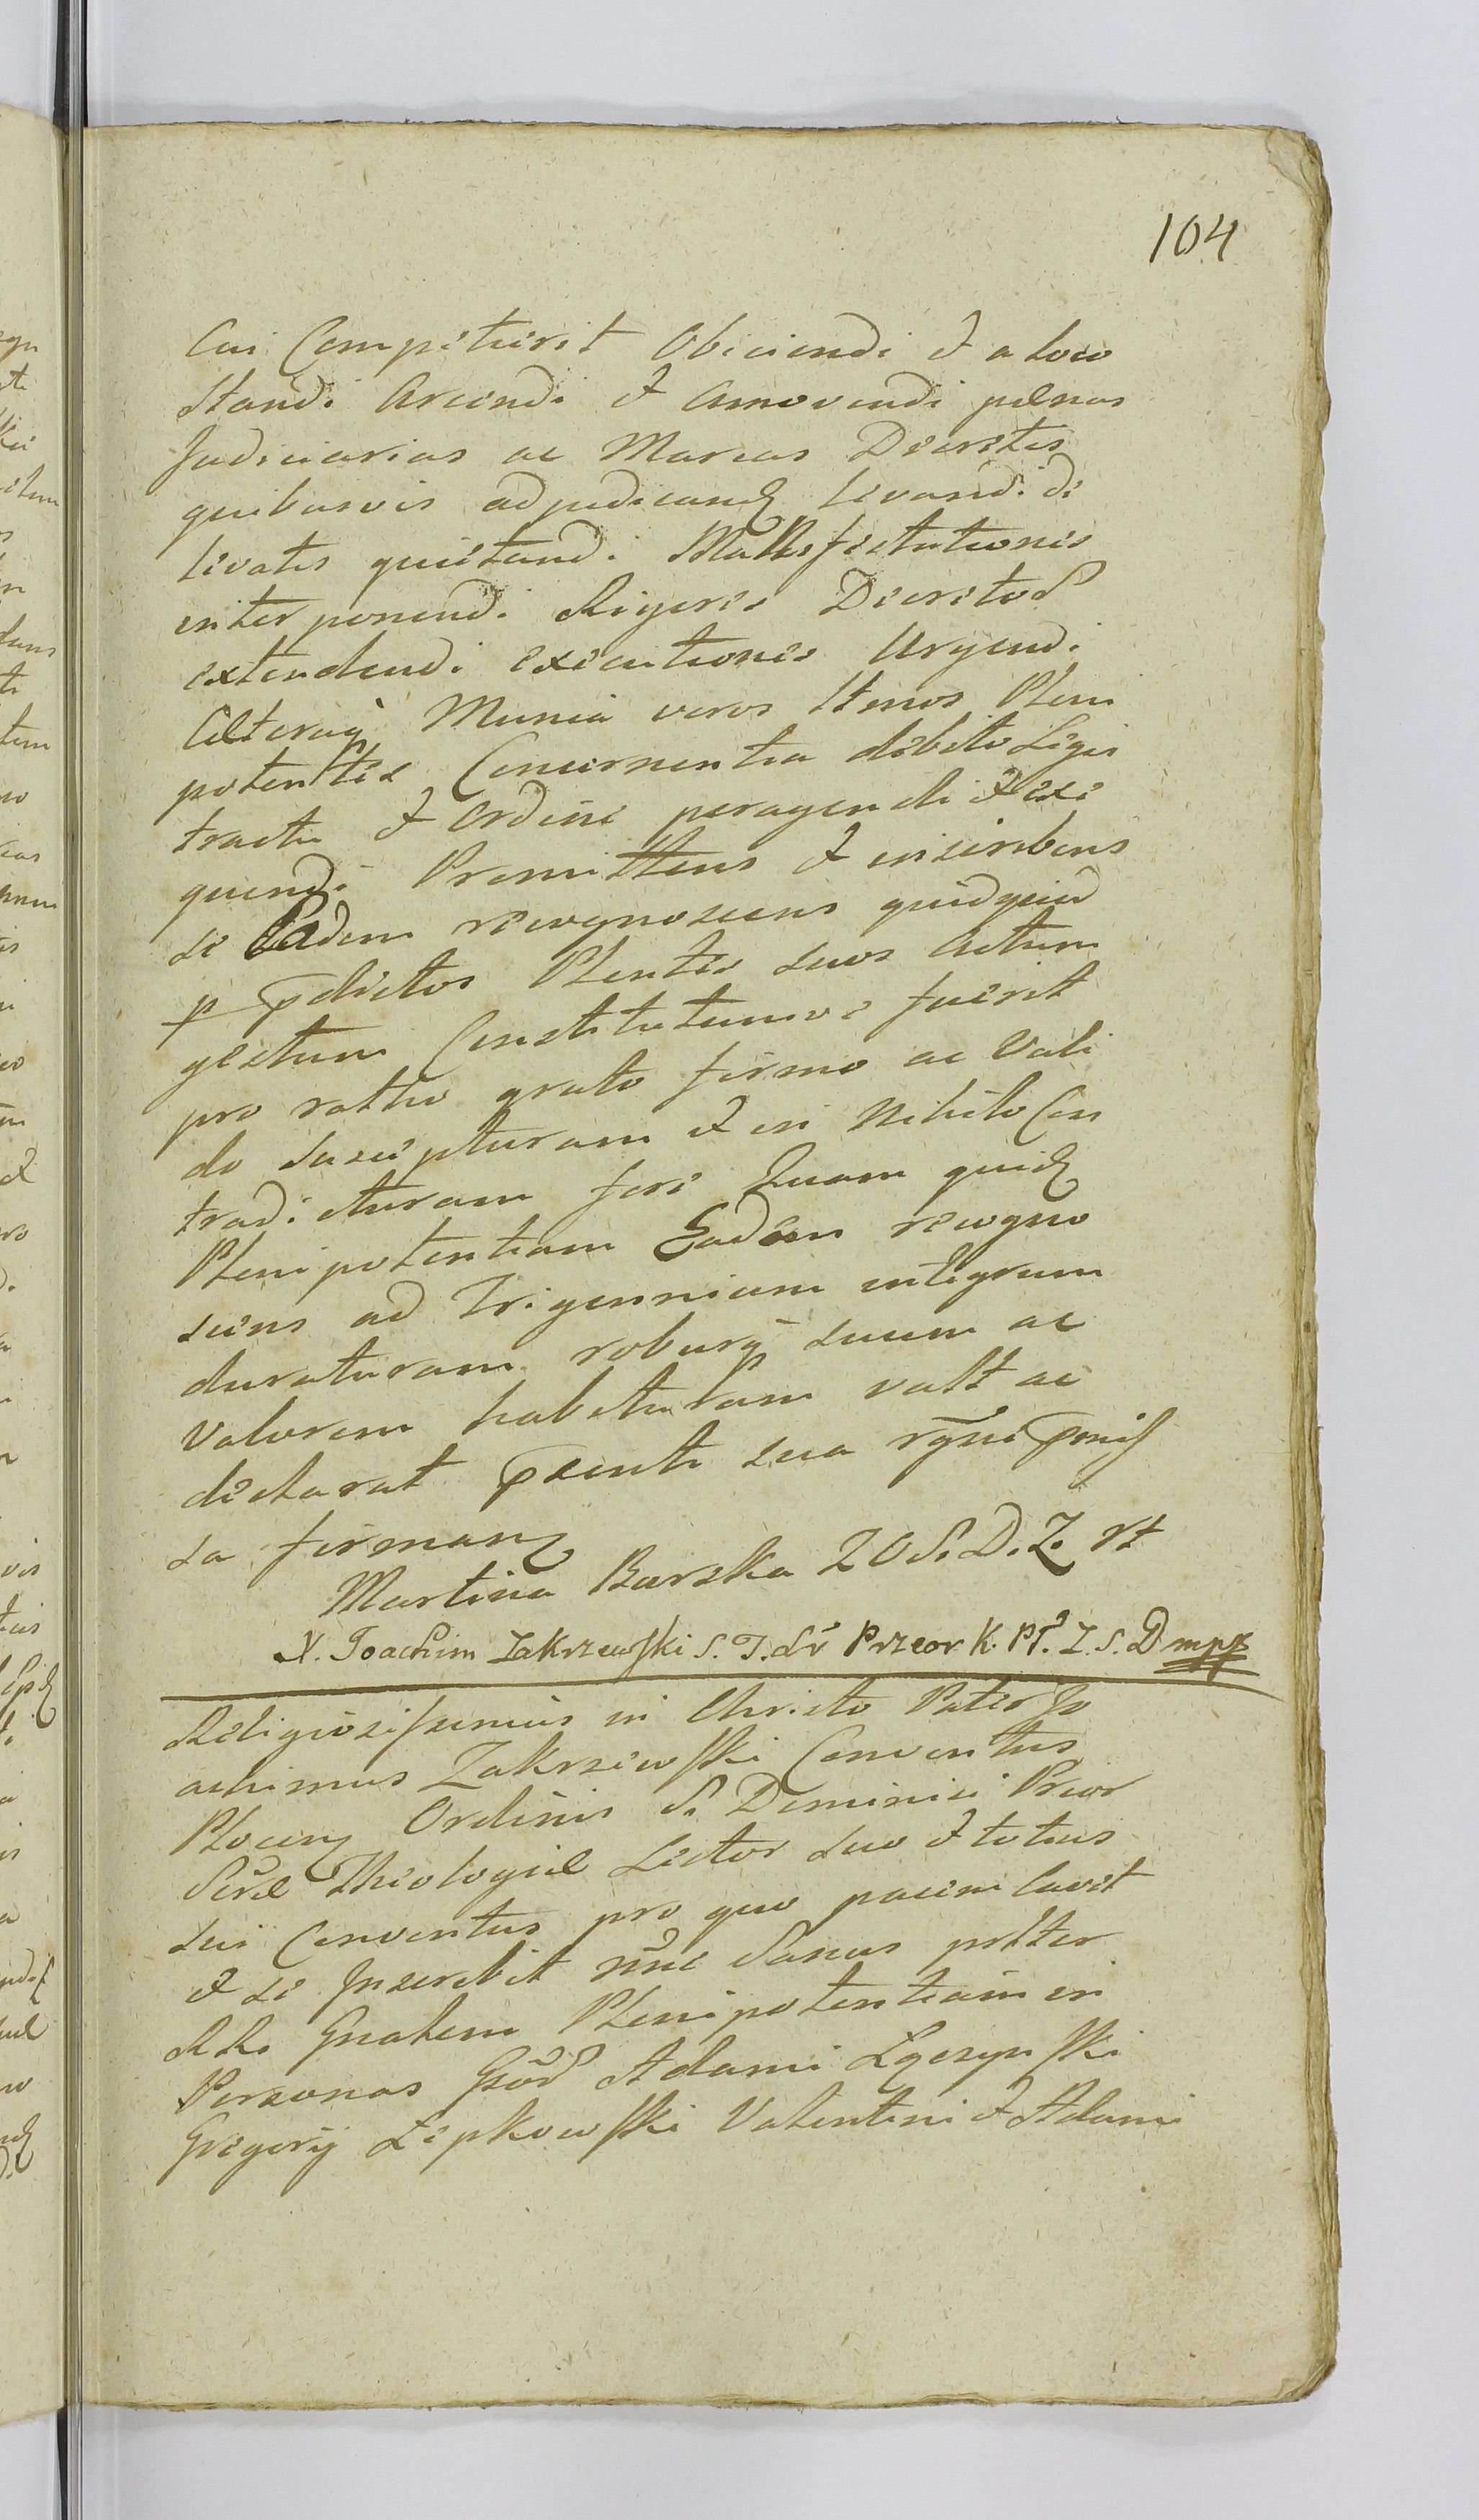 104
Cui Competierit Obiiciendi & a loco
standi Arcendi & Amovendi pænas
Judiciarias ac Marcas Decretis
quibusvis adjudicand levandi de
levatis quietandi Manifestationes
interponendi Rigores Decretor
extendendi executiones Urgendi
Cæteraq Munia veros Stenos Pleni
potentiæ Concernentia debito Legis
tractu & Ordine peragendi & exe
quendi Promittens & inscribens
se Eadem recognoscens quidquid
p pdictos Plentes suos Actum
gestum Constitutumve fuerit
pro ratho grato firmo ac Vali
do suscepturam & in Nihilo Con
tradicturam fore Quam quid
Plenipotentiam Eadem recogno
scens ad Trigennium integrum
duraturam roburq suum ac
Valorem habituram vult ac
declarat pæsenti sua rgne pmis
sa firman
Martina Barska Z O S. D. Z. rt
X. Joachim Zakrzewski S. T. Lr Przeor K. Pł. Z. S. D mpp
Religiosissimus in Christo Pater Jo
achimus Zakrzewski Conventus
Plocen Ordinis S. Dominici Prior
Scræ Theologiæ Lector suo & totius
sui Conventus pro quo pacem Cavet
& se Inscrebit nõie Sanus pstter
RR. Gnalem Plenipotentiam in
Personas Gsor Adami Łęczynski
Gregorij Lipkowski Valentini & Adami